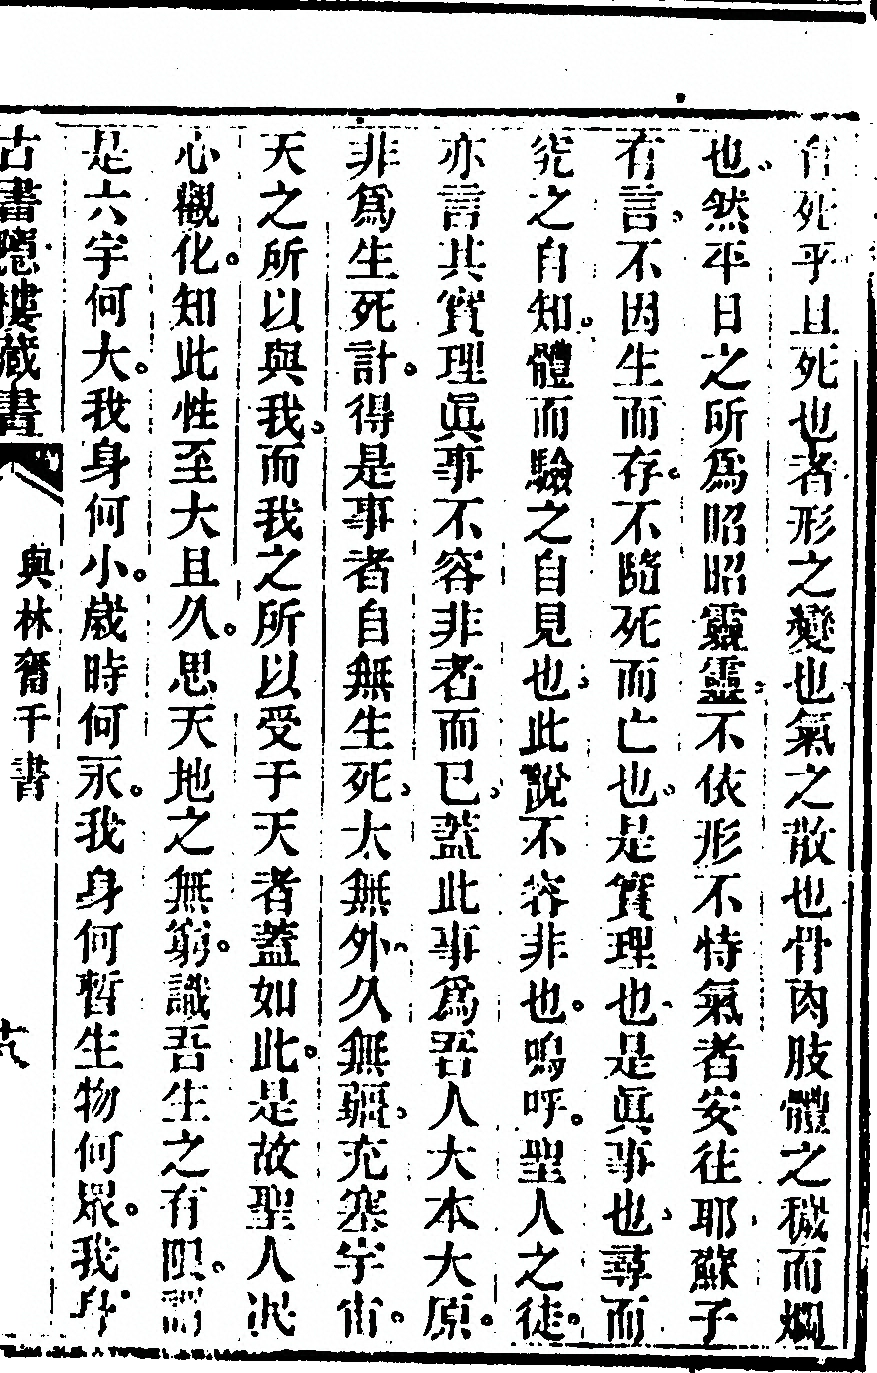 有死乎且死也者形之變也氣之散也骨肉肢體之穢而爛
也然平日之所爲昭昭靈靈不依形不恃氣者安往耶蘇子
有言不因生而存不隨死而亡也是實理也是眞事也尋而
究之自知體而驗之自見也此說不容非也嗚呼聖人之徒
亦言其實理眞事不容非者而已蓋此事爲吾人大本大原
非爲生死計得是事者自無生死大無外久無疆充塞宇宙
天之所以與我而我之所以受于天者蓋如此是故聖人洗
心觀化知此性至大且久思天地之無窮識吾生之有限謂
是六宇何大我身何小歲時何永我身何暫生物何眾我身
古書隱樓藏書 與林奮千書